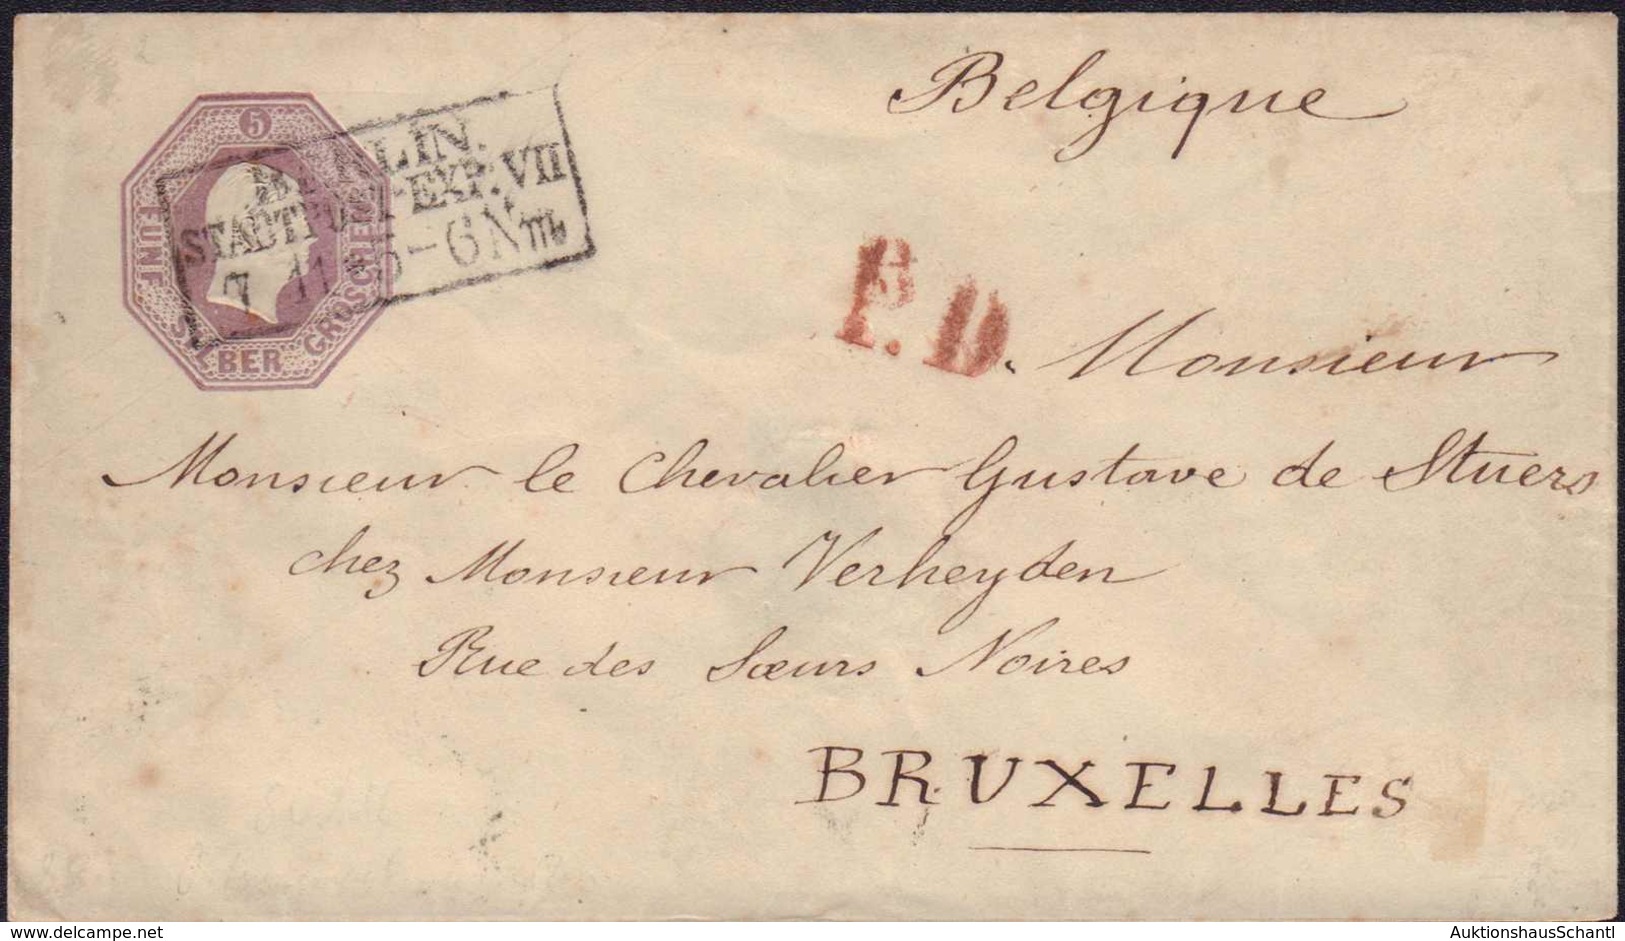 Belgique
5
FÜNF
SILBER GROSCHEN
BERLIN.
STADTPOST-EXP. VII
7 11 * 5-6 Nm
P. D.
Monsieur
Monsieur le Chevalier Gustave de Stuers
chez Monsieur Verheyden
Rue des Sœurs Noires
BRUXELLES
www.delcampe.net
AuktionshausSchantl